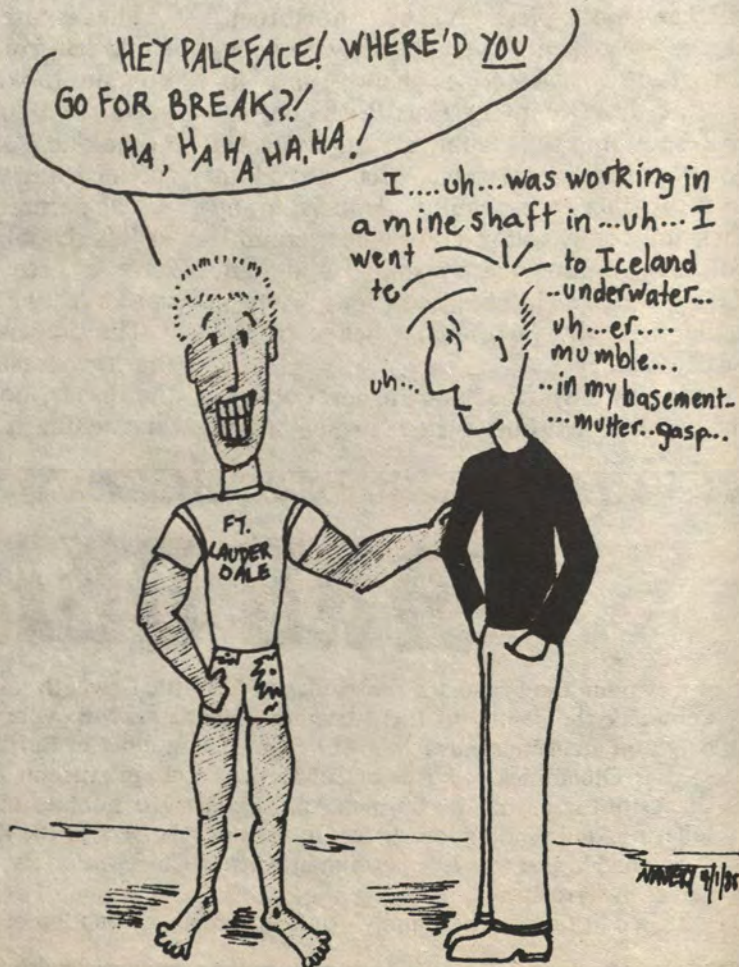 HEY PALEFACE! WHERE'D YOU
GO FOR BREAK?!
HA, HA HA HA, HA!
I....uh...was working in
a mine shaft in...uh...I
went to
to Iceland
..underwater...
uh...er....
mumble...
..in my basement-
...mutter..gasp...
uh...
FT.
LAUDER
DALE